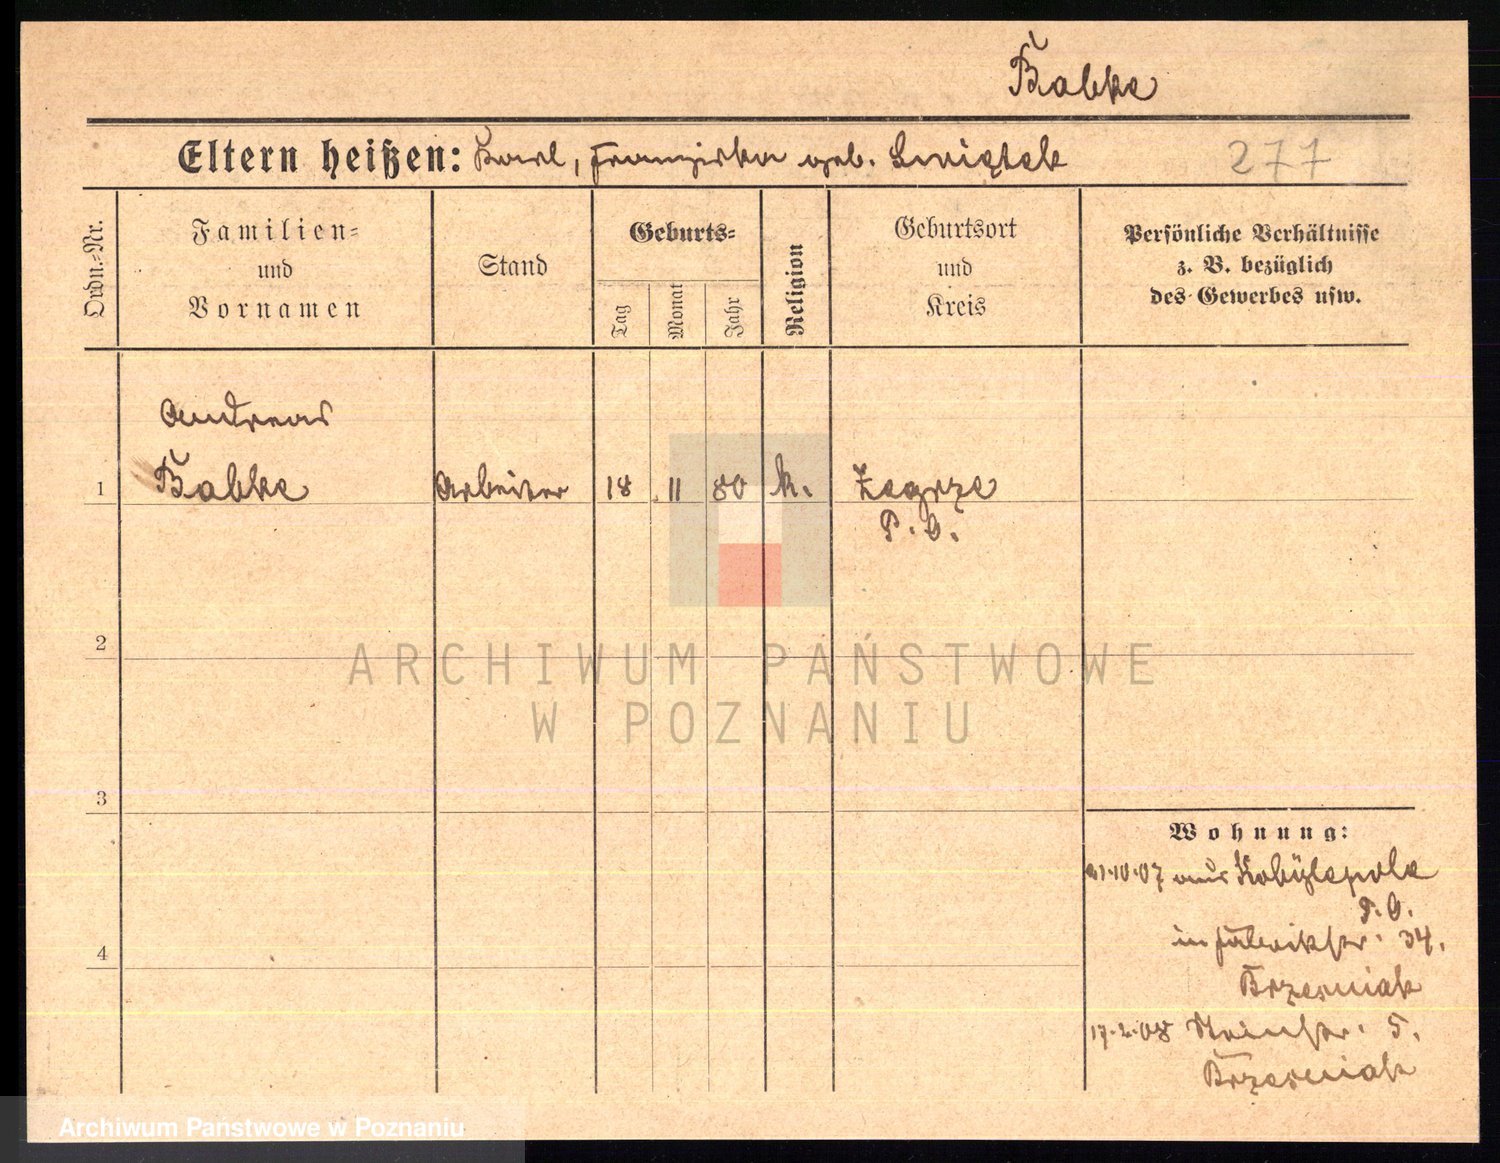 Babke
Eltern heißen: Karl, Franziska geb. Swiątek
277
Ordn.-Nr.
Familien- und Vornamen
Stand
Geburts-
Tag
Monat
Jahr
Religion
Geburtsort und Kreis
Persönliche Verhältnisse
z. B. bezüglich
des Gewerbes usw.
Andreas
1 Babke Arbeiter 18 11 80 k. Zegrze
P. O.
2
3
4
Wohnung:
21.10.07 aus Kobylepole
P. O.
in Fabrikstr. 34.
Brzesniak
17.2.08 Steinstr. 5.
Brzesniak
ARCHIWUM PAŃSTWOWE
W POZNANIU
Archiwum Państwowe w Poznaniu